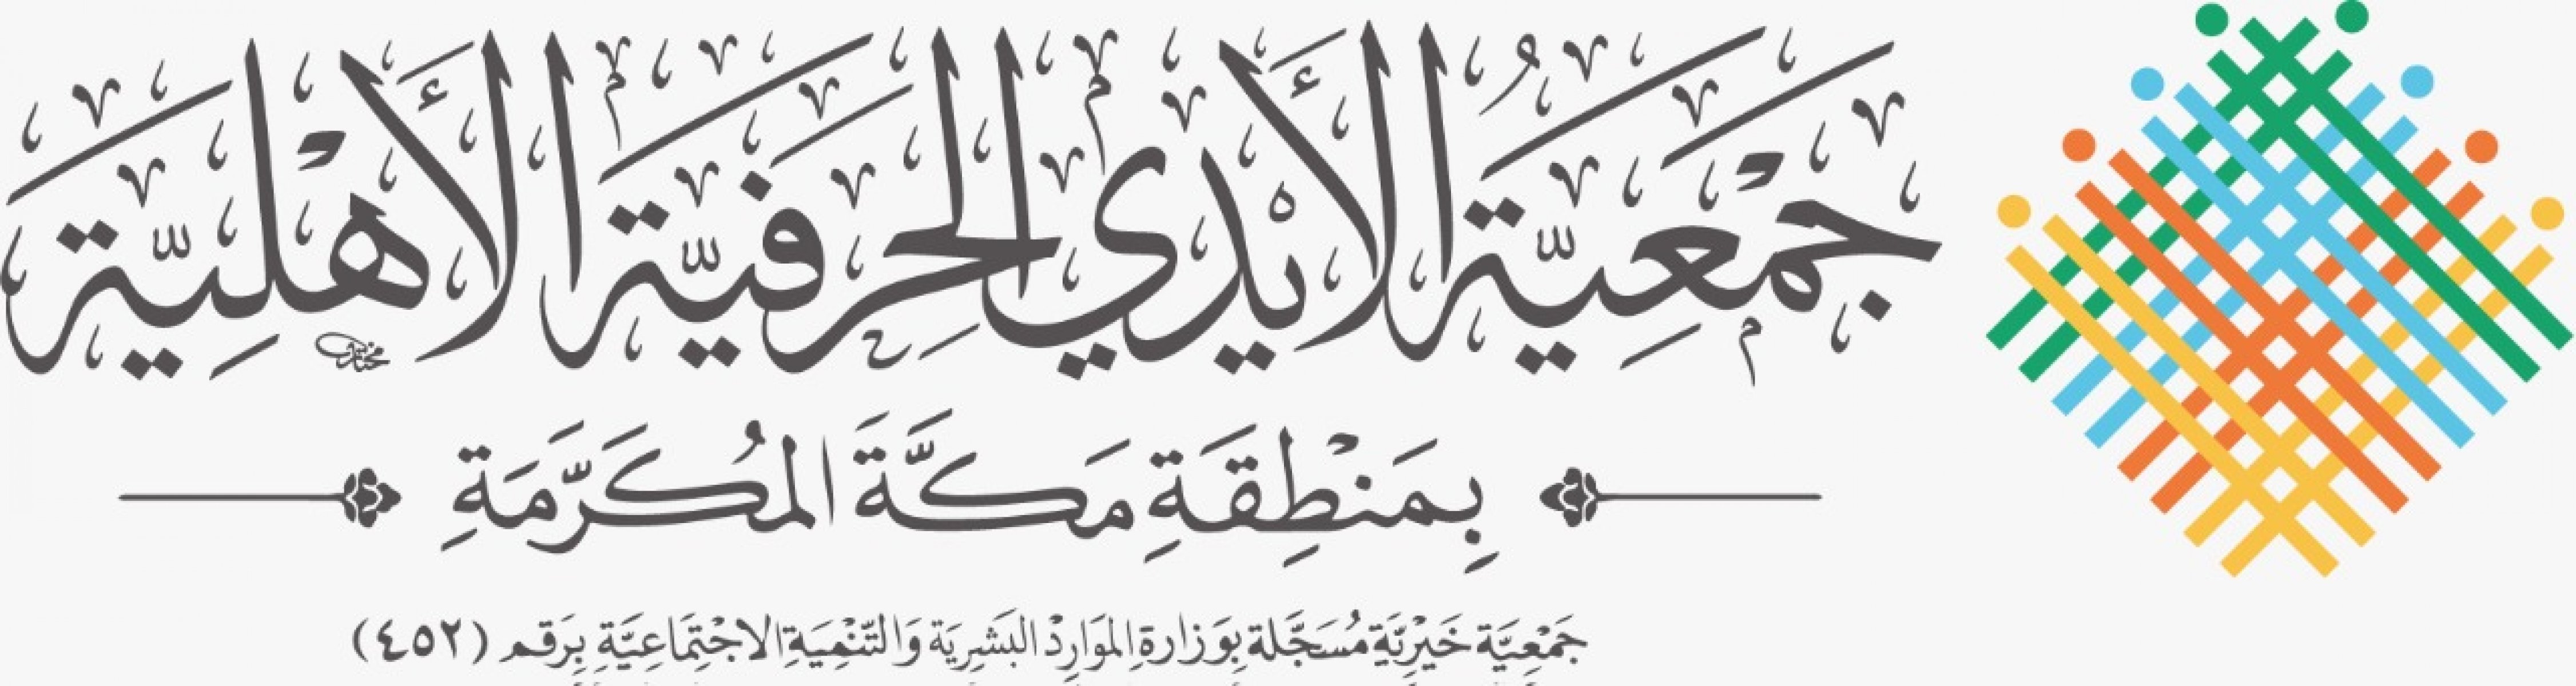 جَمْعِيَّةُ الأَيْدِي الحِرَفِيَّة الأَهْلِيَّة
بِمَنْطِقَةِ مَكَّةَ المُكَرَّمَةِ
جَمْعِيَّة خَيْرِيَّةِ مُسَجَّلة بِوَزارةِ المَوَارِدْ البَشَرِيَة وَالتَّنْمِيَةِ الاجْتِمَاعِيَّةِ بِرَقم (٤٥٢)